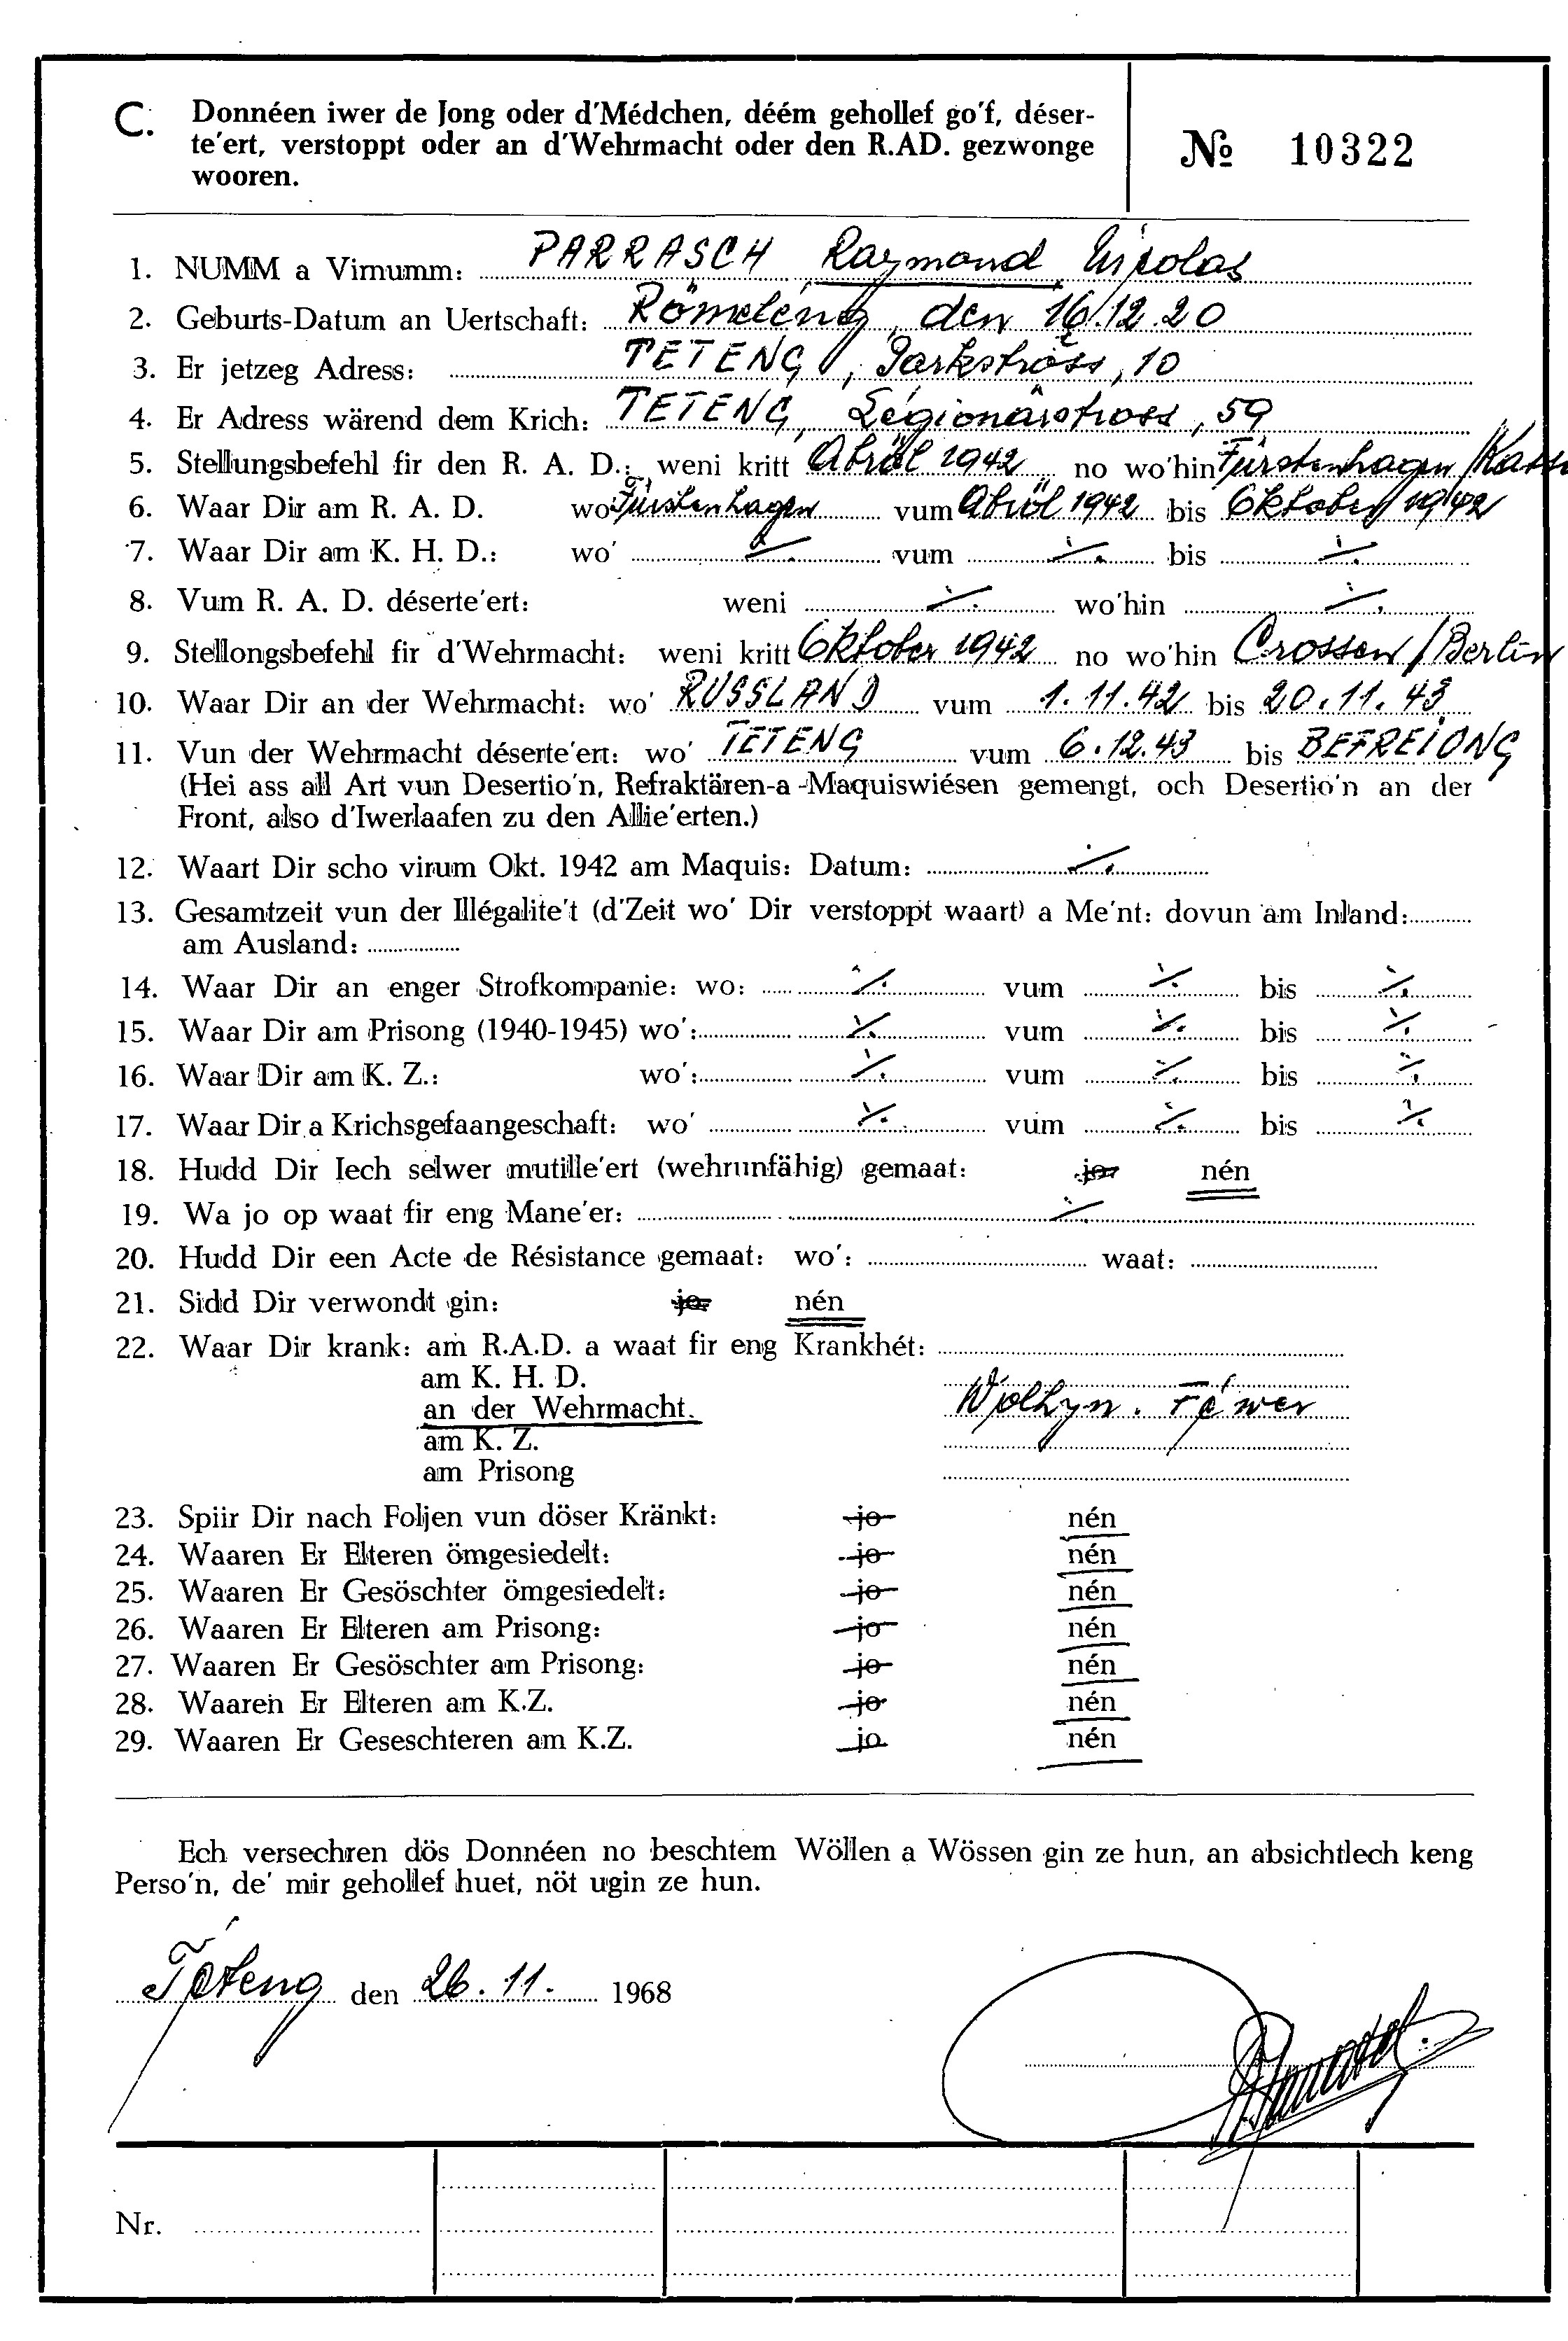 C. Donnéen iwer de Jong oder d'Médchen, déém gehollef go'f, déser-
te'ert, verstoppt oder an d'Wehrmacht oder den R.AD. gezwonge
wooren.
№ 10322
1. NUMM a Virnumm: PARRASCH Raymond Nicolas
2. Geburts-Datum an Uertschaft: Römeléng, den 16.12.20
3. Er jetzeg Adress: TETENG, Parkstròss, 10
4. Er Adress wärend dem Krich: TETENG, Légionärstross, 59
5. Stellungsbefehl fir den R. A. D.: weni kritt Abröl 1942 no wo'hin Fürstenhagen/Kass
6. Waar Dir am R. A. D. wo' Fürstenhagen vum Abröl 1942 bis Oktober 1942
7. Waar Dir am K. H. D.: wo' ./. vum ./. bis ./.
8. Vum R. A. D. déserte'ert: weni ./. wo'hin ./.
9. Stellongsbefehl fir d'Wehrmacht: weni kritt Oktober 1942 no wo'hin Crossen/Berlin
10. Waar Dir an der Wehrmacht: wo' RUSSLAND vum 1.11.42 bis 20.11.43
11. Vun der Wehrmacht déserte'ert: wo' TETENG vum 6.12.43 bis BEFREIONG
(Hei ass all Art vun Desertio'n, Refraktären-a -Maquiswiésen gemengt, och Desertio'n an der
Front, also d'Iwerlaafen zu den Allie'erten.)
12. Waart Dir scho virum Okt. 1942 am Maquis: Datum: ./.
13. Gesamtzeit vun der Illégalite't (d'Zeit wo' Dir verstoppt waart) a Me'nt: dovun am Inland:
am Ausland:
14. Waar Dir an enger Strofkompanie: wo: ./. vum ./. bis ./.
15. Waar Dir am Prisong (1940-1945) wo': ./. vum ./. bis ./.
16. Waar Dir am K. Z.: wo': ./. vum ./. bis ./.
17. Waar Dir a Krichsgefaangeschaft: wo' ./. vum ./. bis ./.
18. Hudd Dir Iech selwer mutille'ert (wehrunfähig) gemaat: jo nén
19. Wa jo op waat fir eng Mane'er: ./.
20. Hudd Dir een Acte de Résistance gemaat: wo': waat:
21. Sidd Dir verwondt gin: jo nén
22. Waar Dir krank: am R.A.D. a waat fir eng Krankhét:
am K. H. D.
an der Wehrmacht. Wolhyn. Féwer
am K. Z.
am Prisong
23. Spiir Dir nach Foljen vun döser Kränkt: jo nén
24. Waaren Er Elteren ömgesiedelt: jo nén
25. Waaren Er Gesöschter ömgesiedelt: jo nén
26. Waaren Er Elteren am Prisong: jo nén
27. Waaren Er Gesöschter am Prisong: jo nén
28. Waaren Er Elteren am K.Z. jo nén
29. Waaren Er Geseschteren am K.Z. jo nén
Ech versechren dös Donnéen no beschtem Wöllen a Wössen gin ze hun, an absichtlech keng
Perso'n, de' mir gehollef huet, nöt ugin ze hun.
Téteng den 26.11. 1968
Nr.